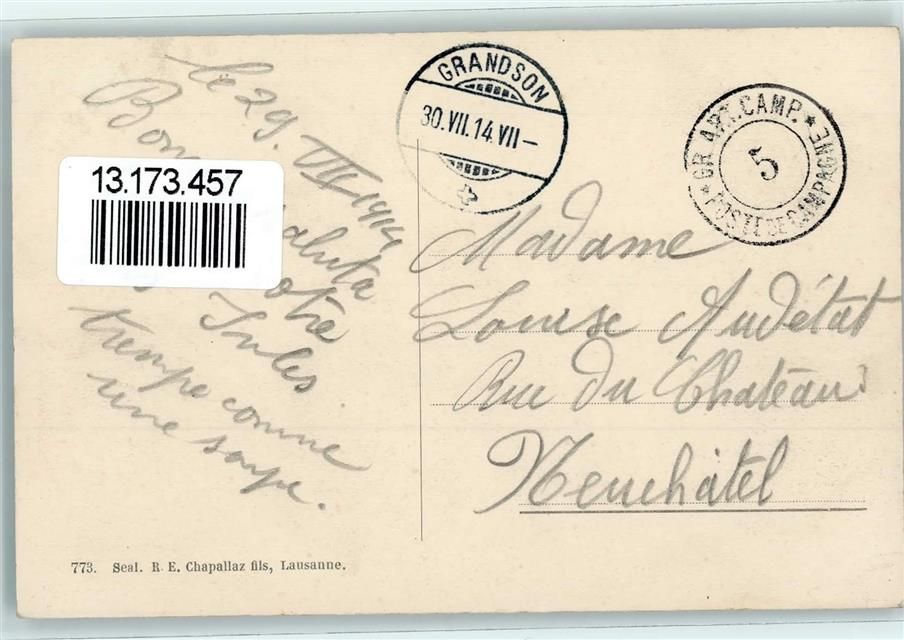 le 29. VII 1914
Bon
13.173.457
otre
Jules
trempé comme
une soupe.
GRANDSON
30.VII.14.VII–
GR. ART. CAMP.
5
POSTE DE CAMPAGNE
Madame
Louise Audétat
Rue du Château
Neuchâtel
773. Seal. R. E. Chapallaz fils, Lausanne.